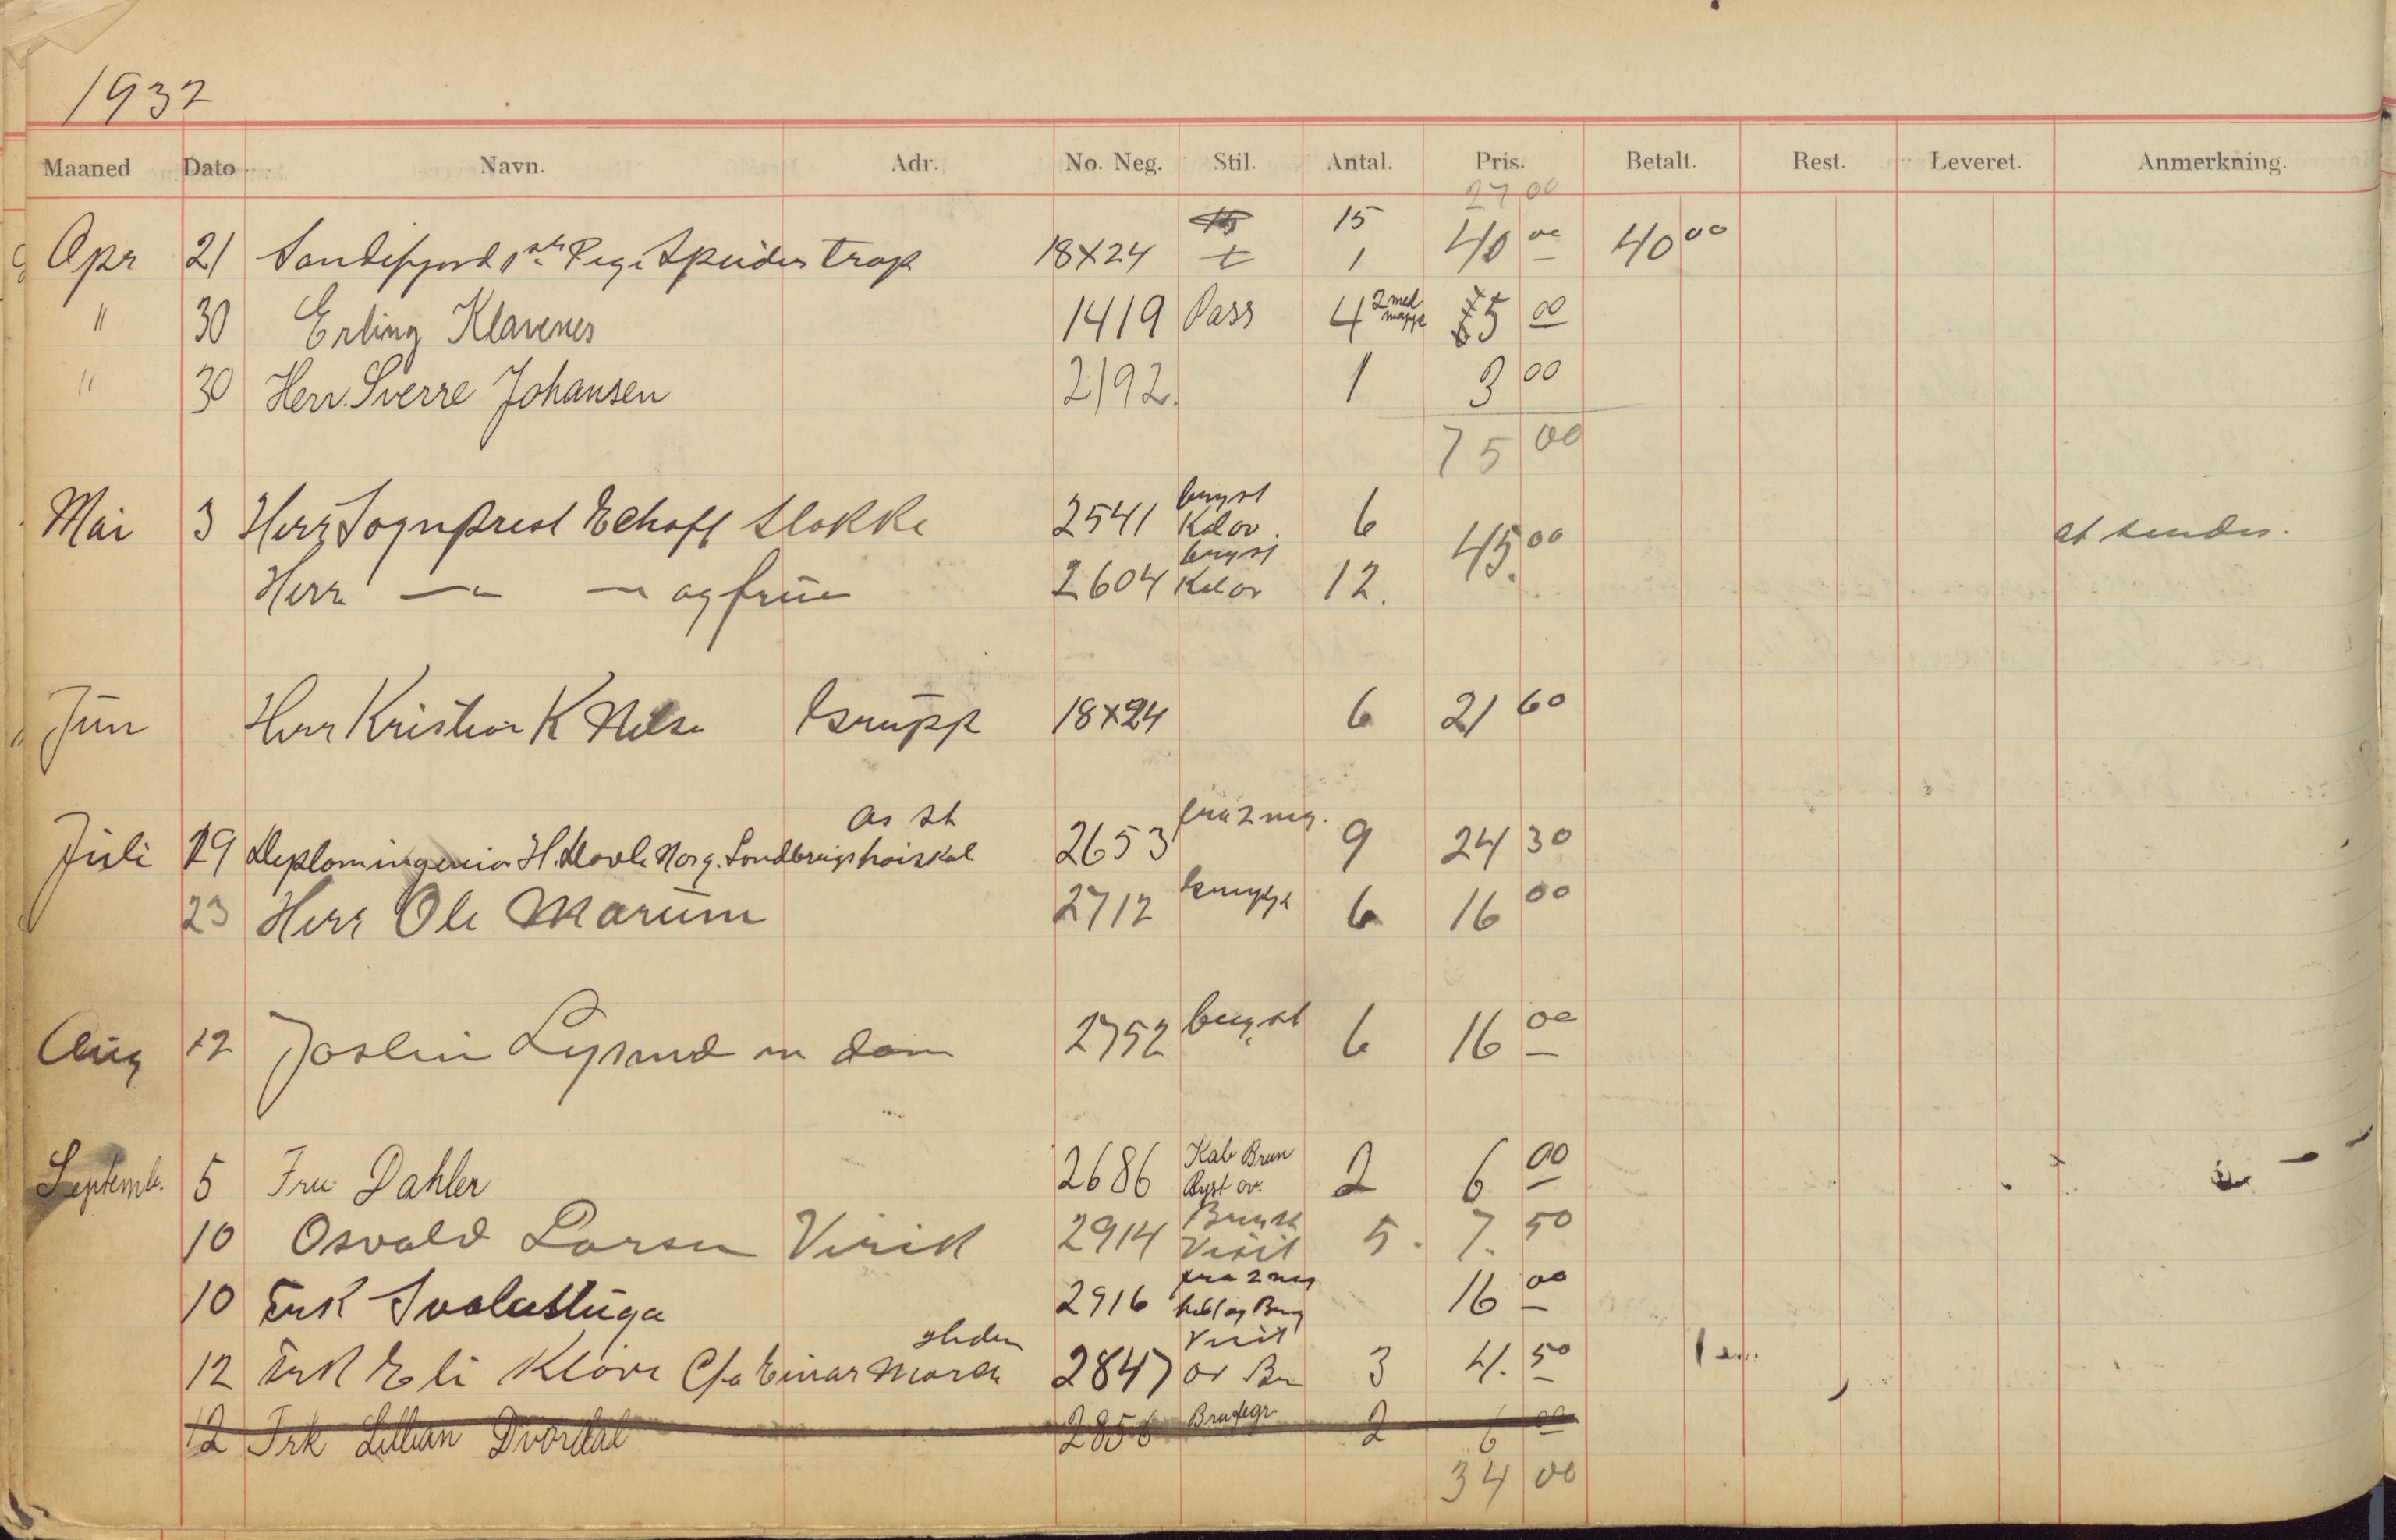 1932
Maaned Dato Navn. Adr. No. Neg. Stil. Antal. Pris. Betalt. Rest. Leveret. Anmerkning.
27 00
Apr 21 Sandefjord 1ste Pige Speider trop 18x24 15 1 40 00 40 00
" 30 Erling Klavenes 1419 Pass 4 2 med mappe 5 00
" 30 Herr. Sverre Johansen 2192. 1 3 00
75 00
Mai 3 Herr Sognprest Echoff Stokke 2541 bryst Kab ov. 6 45.00 at sendes.
Herr — — og frue 2604 bryst Kab ov 12.
Jun Herr Kristian K Nilsen Grupp 18x24 6 21 60
as st
Juli 19 Diplomingeniør H. Norg. Landbrugshøiskol 2653 fra 2 neg. 9 24 30
23 Herr Ole Marum 2712 6 16 00
Aug 12 Joslin m dame 2752 bryst 6 16 00
Septemb. 5 Fru Dahler 2686 Kab Brun Byst ov. 2 6 00
10 Osvald Larsen Virik 2914 Bryst Visit 5. 7. 50
10 Frk Svalastuga 2916 fra 2 neg hel og Bry 16 00
12 Frk Eli Klove C/o Einar 2847 Visit ov Br 3 4. 50
12 Frk Lillian 2856 Brudegr. 2 6 00
34 00